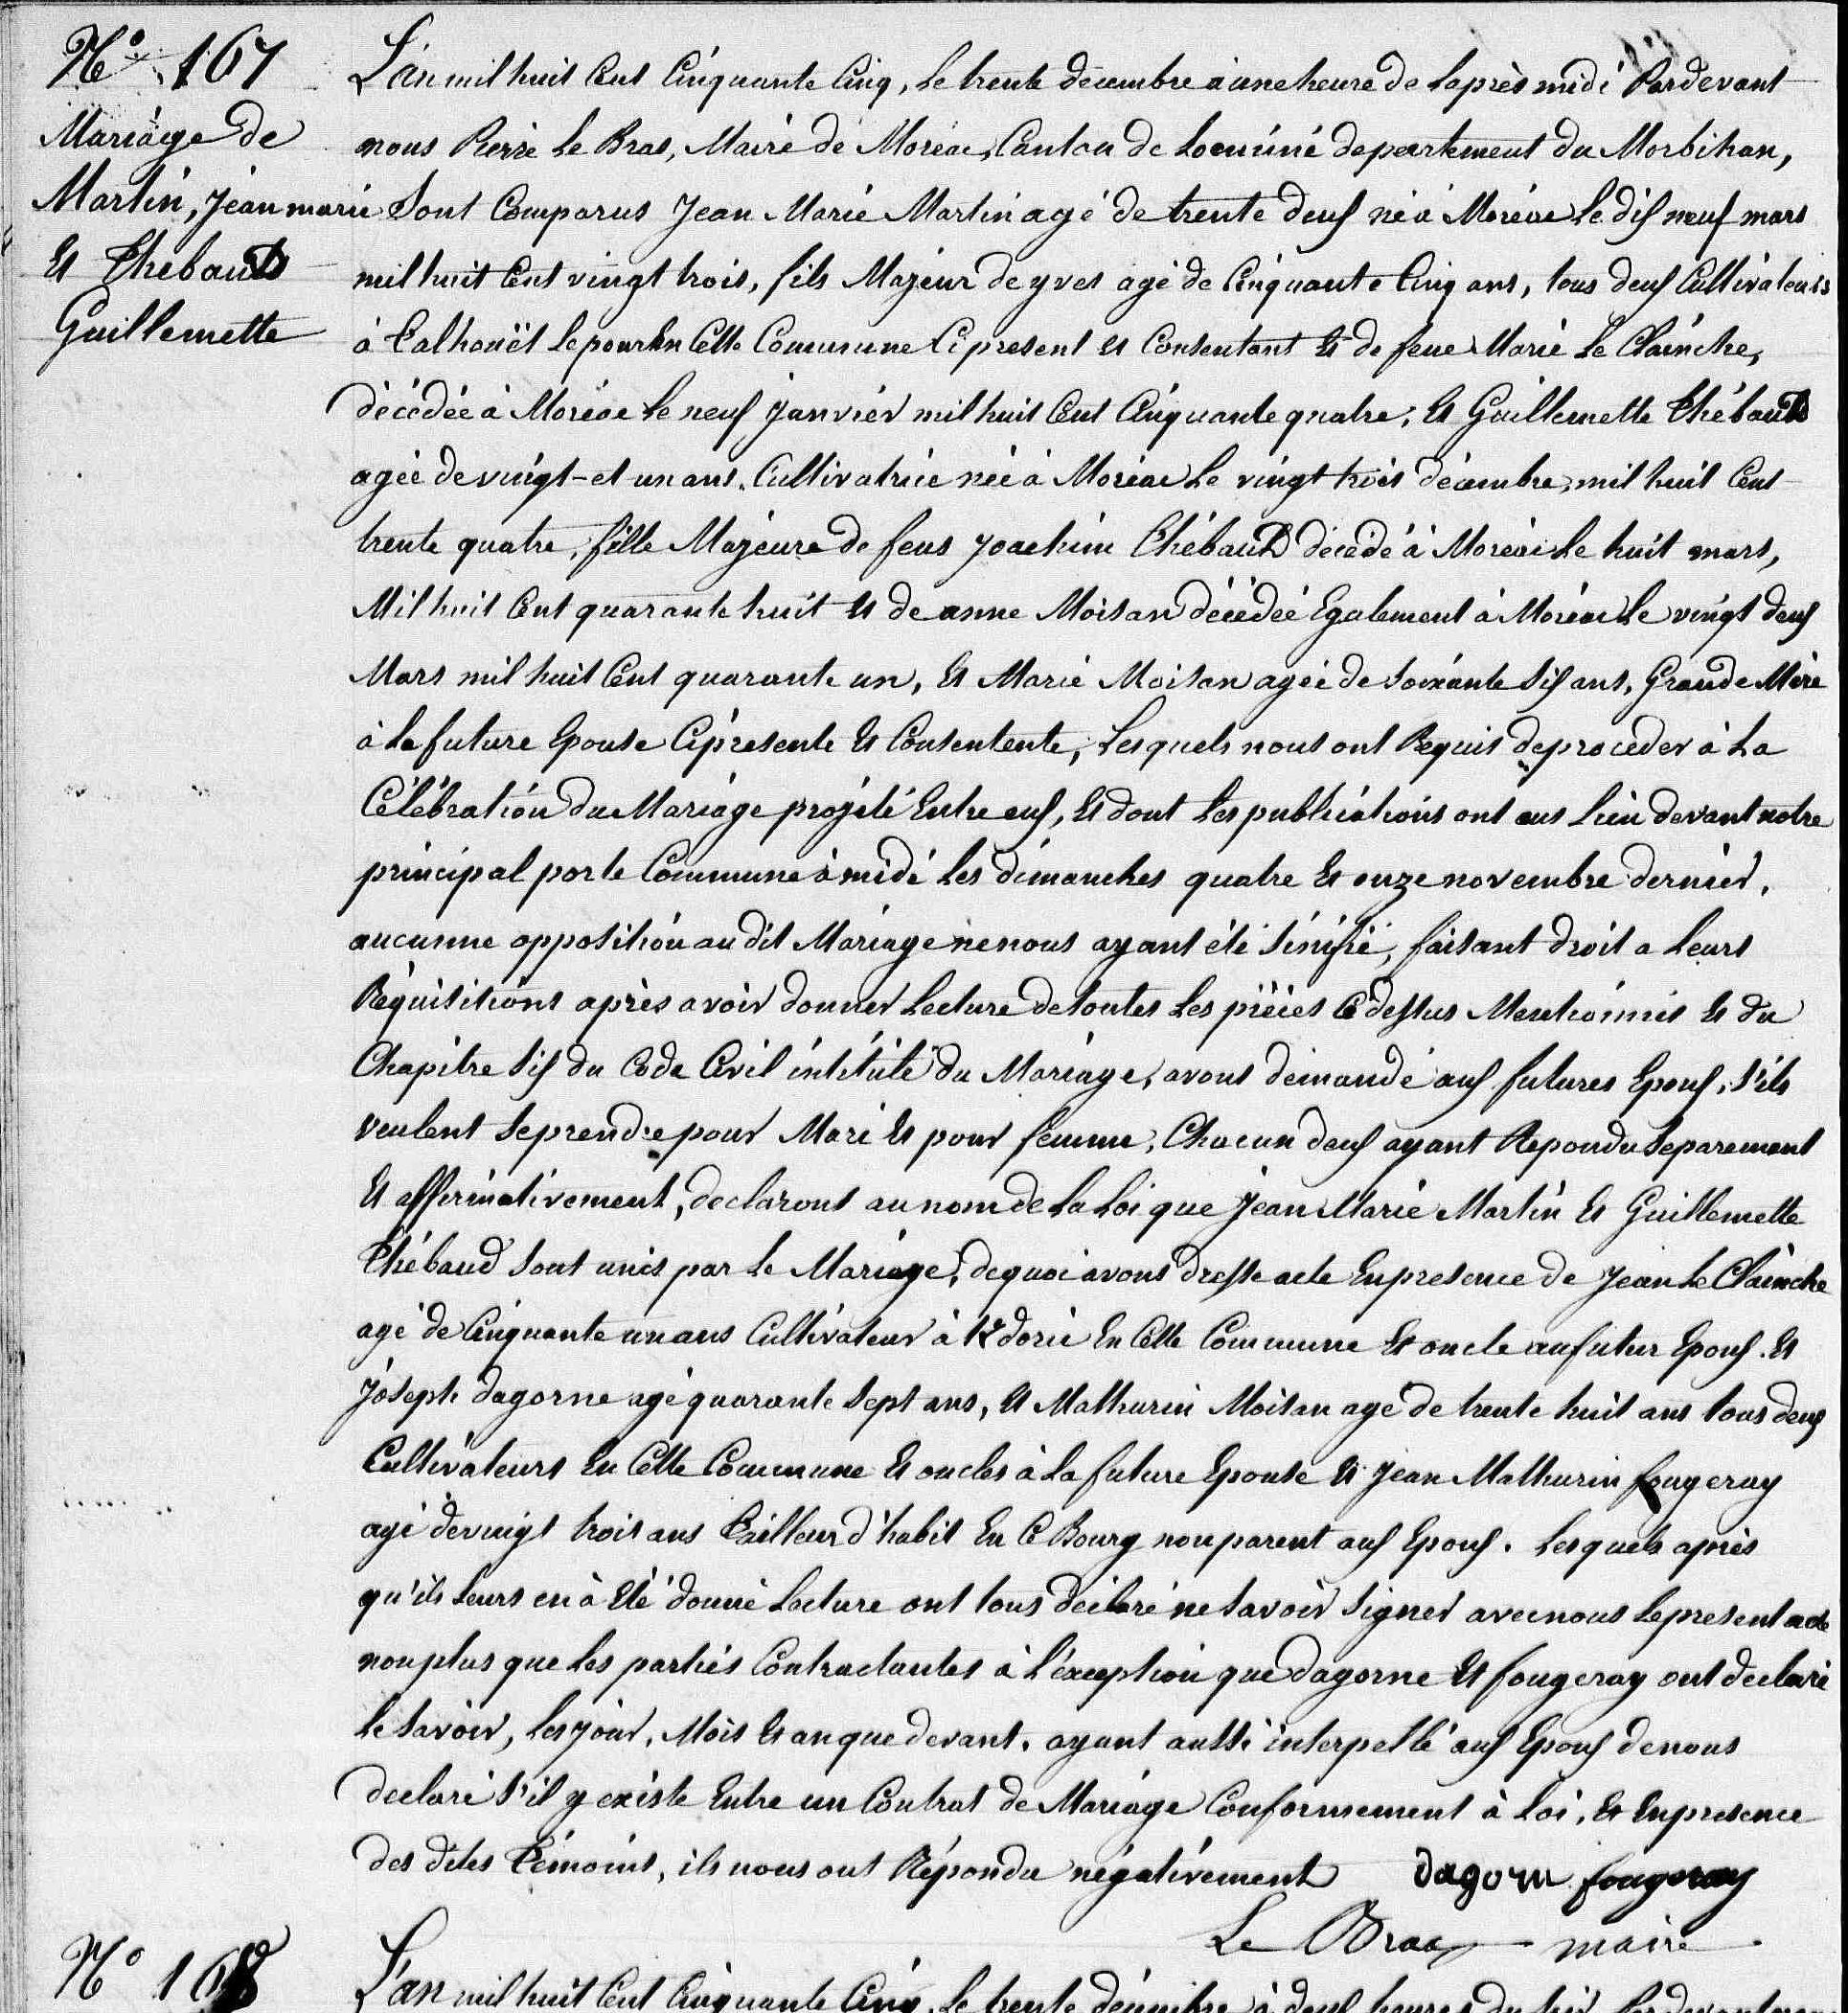 N° 167
Mariage de
Martin, jean marie
Et Thébaud
Guillemette
L'an mil huit Cent Cinquante Cinq, le trente décembre à une heure de laprès midi Pardevant
nous Pierre Le Bras, Maire de Moréac, Canton de Locminé departement du Morbihan,
Sont Comparus Jean Marie Martin agé de trente deux né à Moréac le dix neuf mars
mil huit Cent vingt trois, fils Majeur de yves agé de Cinquante Cinq ans, tous deux Cultivateurs
à Talhouët en Cette Commune Ci present Et Consentant Et de feue Marie Le Clainche,
décédée à Moréac le neuf janvier mil huit Cent Cinquante quatre, Et Guillemette Thébaud
agée de vingt-et un ans, Cultivatrice née à Moréac le vingt trois décembre, mil huit Cent
trente quatre, fille Majeure de feus joachim Thébaud décédé à Moréac le huit mars,
Mil huit Cent quarante huit Et de anne Moisan décédée Egalement à Moréac le vingt deux
Mars mil huit Cent quarante un, Et Marie Moisan agée de soixante six ans, Grande Mère
à la future Epouse Ci présente Et Consentente, Lesquels nous ont Requis de procéder à La
Célébration du Mariage projété Entre eux, Et dont les publications ont eus lieu devant notre
principal porte Commune à midi les dimanches quatre Et onze novembre dernier,
aucunne opposition au dit Mariage ne nous ayant été sinifié, faisant droit a leurs
Réquisitions après avoir donner Lecture de toutes les pièces Ci dessus Mentionnis Et du
Chapitre Six du Code Civil intitulé du Mariage, avons demandé aux futures Epoux, s'ils
veulent se prendre pour Mari Et pour femme, Chacun deux ayant Repondu Separement
Et affirmativement, declarons au nom de la loi que Jean Marie Martin Et Guillemette
Thébaud Sont unis par le Mariage, de quoi avons dresse acte En presence de Jean Le Clainche
agé de Cinquante un ans Cultivateur à Kdorie En Cette Commune Et oncle au futur Epoux. Et
joseph dagorne agé quarante Sept ans, Et Mathurin Moisan agé de trente huit ans tous deux
Cultivateurs En Cette Commune Et oncles à la future Epouse Et Jean Mathurin fougeray
agé de vingt trois ans Tailleur d'habit En Ce Bourg non parent aux Epoux. Lesquels après
qu'ils leurs en à Eté donné Lecture ont tous déclaré ne savoir Signer avec nous le present acte
non plus que les parties Contractantes à l'éxception que dagorne Et fougeray ont declaré
le savoir, les jour, Mois Et an que devant. ayant aussi interpellé aux Epoux de nous
declaré s'il y existe Entre un Contrat de Mariage Conformement à Loi, Et En presence
des dites Témoins, ils nous ont Répondu négativement dagorn fougeray
Le Bras maire
N° 168
L'an mil huit Cent Cinquante Cinq, le trente décembre à deux heures du soir